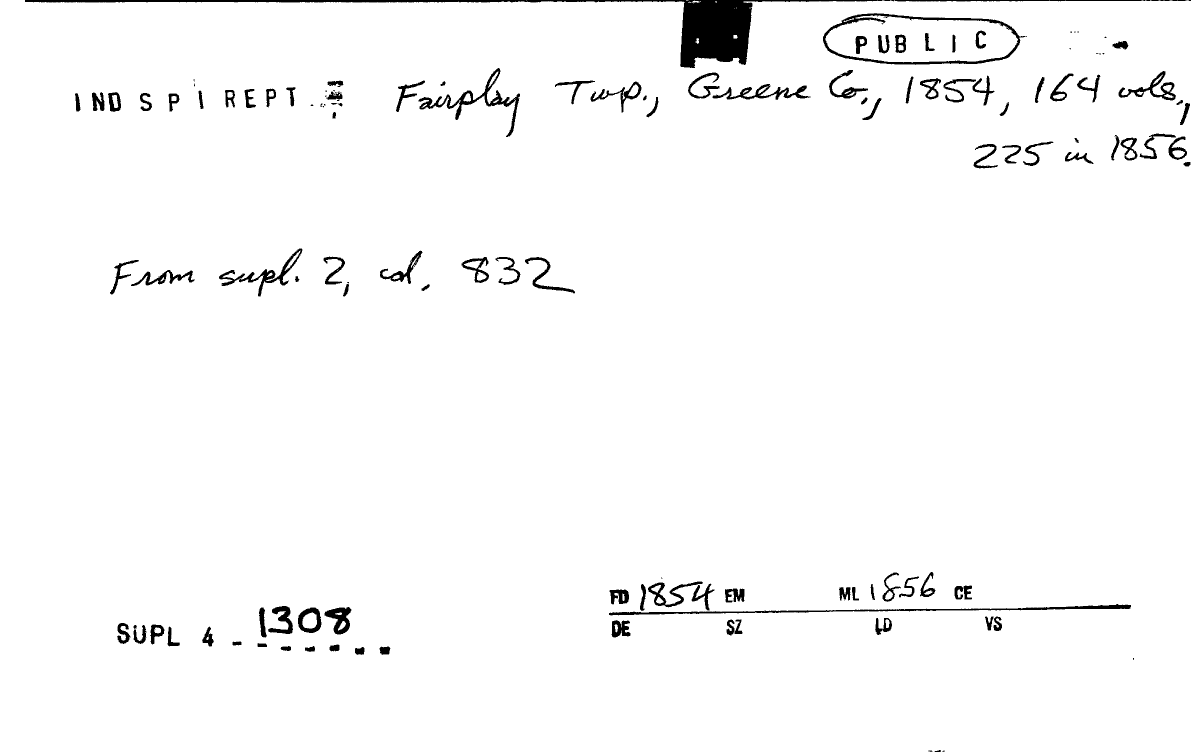 PUBLIC
INDSPIREPT Fairplay Twp., Greene Co., 1854, 164 vols.,
225 in 1856.
From supl. 2, col. 832
FD 1854 EM ML 1856 CE
SUPL 4 - 1308
DE SZ LD VS